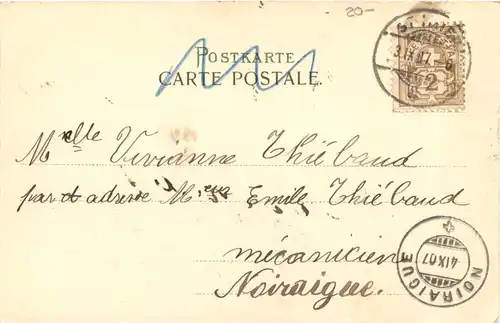 20-
POSTKARTE
CARTE POSTALE.
3.IX.07.
2
Melle Vivianne Thiébaud
par adresse Mieur Emile Thiébaud
mécanicien
Noiraigue.
NOIRAIGUE
4 IX 07